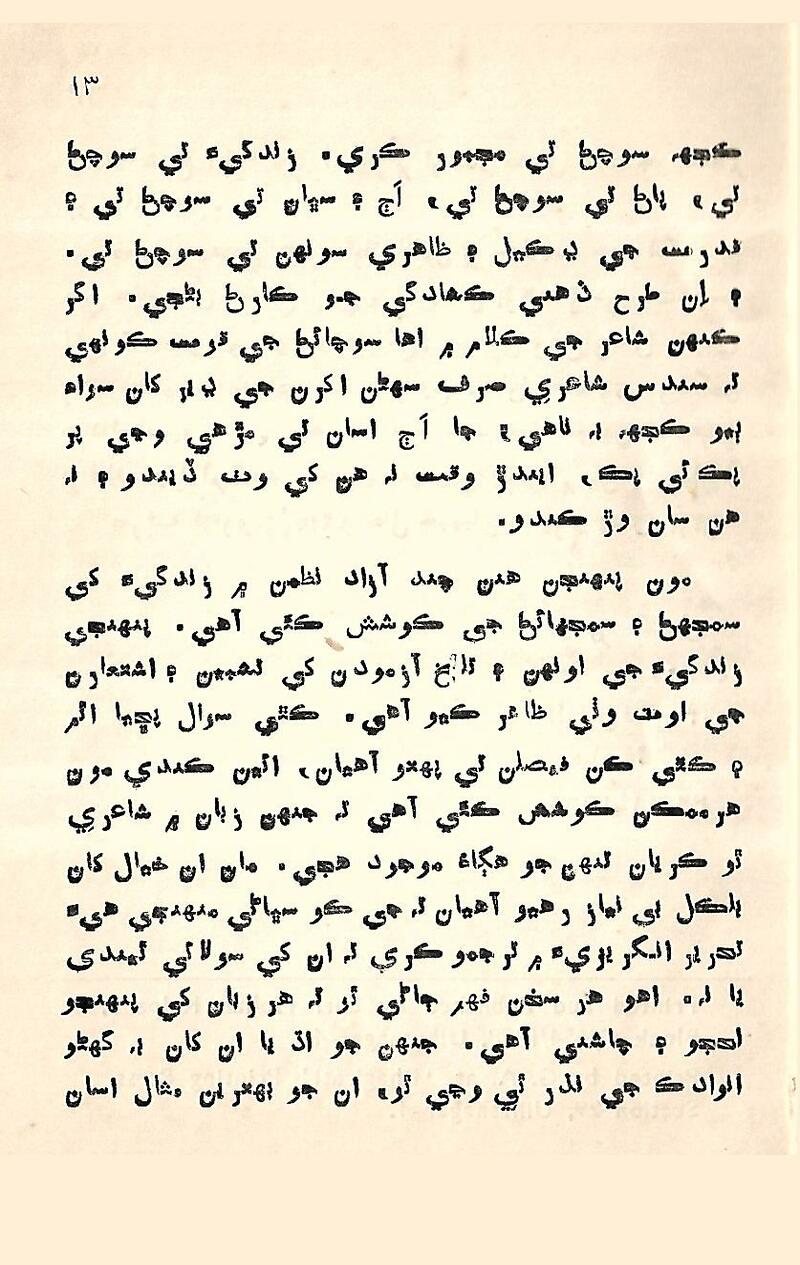 ١٣
ڪجهہ سوچڻ تي مجبور ڪري. زندگيءَ تي سوچڻ
تي، پاڻ تي سوچڻ تي، اَڄ ۽ سڀان تي سوچڻ تي ۽
قدرت جي ڍڪيل ۽ ظاهري سونهن تي سوچڻ تي.
۽ اِن طرح ذهني ڪشادگي جو ڪارڻ بڻجي. اگر
ڪنهن شاعر جي ڪلام ۾ اها سوچائڻ جي قوت ڪونهي
تہ سندس شاعري صرف سهڻن اکرن جي ڍير کان سواء
ٻيو ڪجهہ بہ ناهي؛ جا اَڄ اسان تي مڙهي وڃي پر
پڪ ئي پڪ، ايندڙ وقت نہ هن کي وٿ ڏيندو ۽ نہ
هن سان وڙ ڪندو.
مون پنهنجن هنن چند آزاد نظمن ۾ زندگيءَ کي
سمجهڻ ۽ سمجهائڻ جي ڪوشش ڪئي آهي. پنهنجي
زندگيءَ جي اونهن ۽ تلخ آزمودن کي تشبيهن ۽ استعارن
جي اوٽ وٺي ظاهر ڪيو آهي. ڪٿي سوال پڇيا اٿم
۽ ڪٿي ڪن فيصلن تي پهتو آهيان، ائين ڪندي مون
هر ممڪن ڪوشش ڪئي آهي تہ جنهن زبان ۾ شاعري
ٿو ڪريان تنهن جو هڳاءُ موجود هجي. مان ان خيال کان
بلڪل بي نياز رهيو آهيان تہ جي ڪو سڀاڻي منهنجي هيءَ
تحرير انگريزيءَ ۾ ترجمو ڪري تہ ان کي سولائي ٿيندي
يا نہ. اهو هر سخن فهم ڄاڻي ٿو تہ هر زبان کي پنهنجو
لهجو ۽ چاشني آهي. جنهن جو اڌ يا ان کان بہ گهڻو
انوادڪ جي نذر ٿي وڃي ٿو، ان جو بهترين مثال اسان